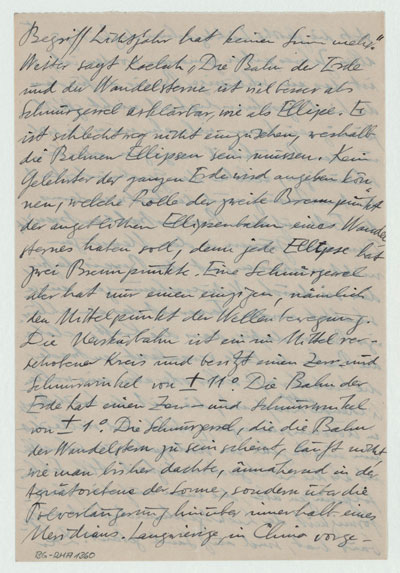 Begriff Lichtjahr hat keinen Sinn mehr."
Weiter sagt "Die Bahn der Erde
und der Wandelsterne ist viel besser als
erklärbar, wie als Ellipse. Es
ist schlechtweg nicht einzusehen, weshalb
die Bahnen Ellipsen sein müssen. Kein
Gelehrter der ganzen Erde wird angeben kön-
nen, welche Rolle der zweite Brennpunkt
der angeblichen Ellipsenbahn eines Wandel
sternes haben soll, denn jede Ellipse hat
zwei Brennpunkte. Eine
aber hat nur einen einzigen, nämlich
den Mittelpunkt der Wellenbewegung.
Die Merkurbahn ist ein im Mittel ver-
schobener Kreis und besitzt einen und
von ± 11°. Die Bahn der
Erde hat einen und
von ± 1°. Die die die Bahn
der Wandelstern zu sein scheint, läuft nicht
wie man bisher dachte, annähernd in der
der Sonne, sondern über die
Polverlängerung hinüber innerhalb eines
Meridians. Langwierige, in China vorge-
RG-DHA1360